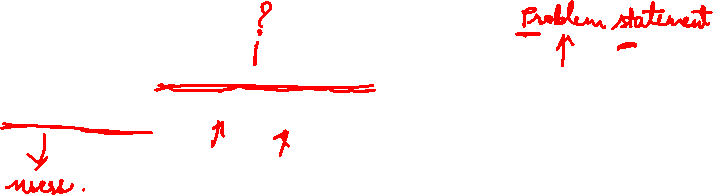 Problem statement
?